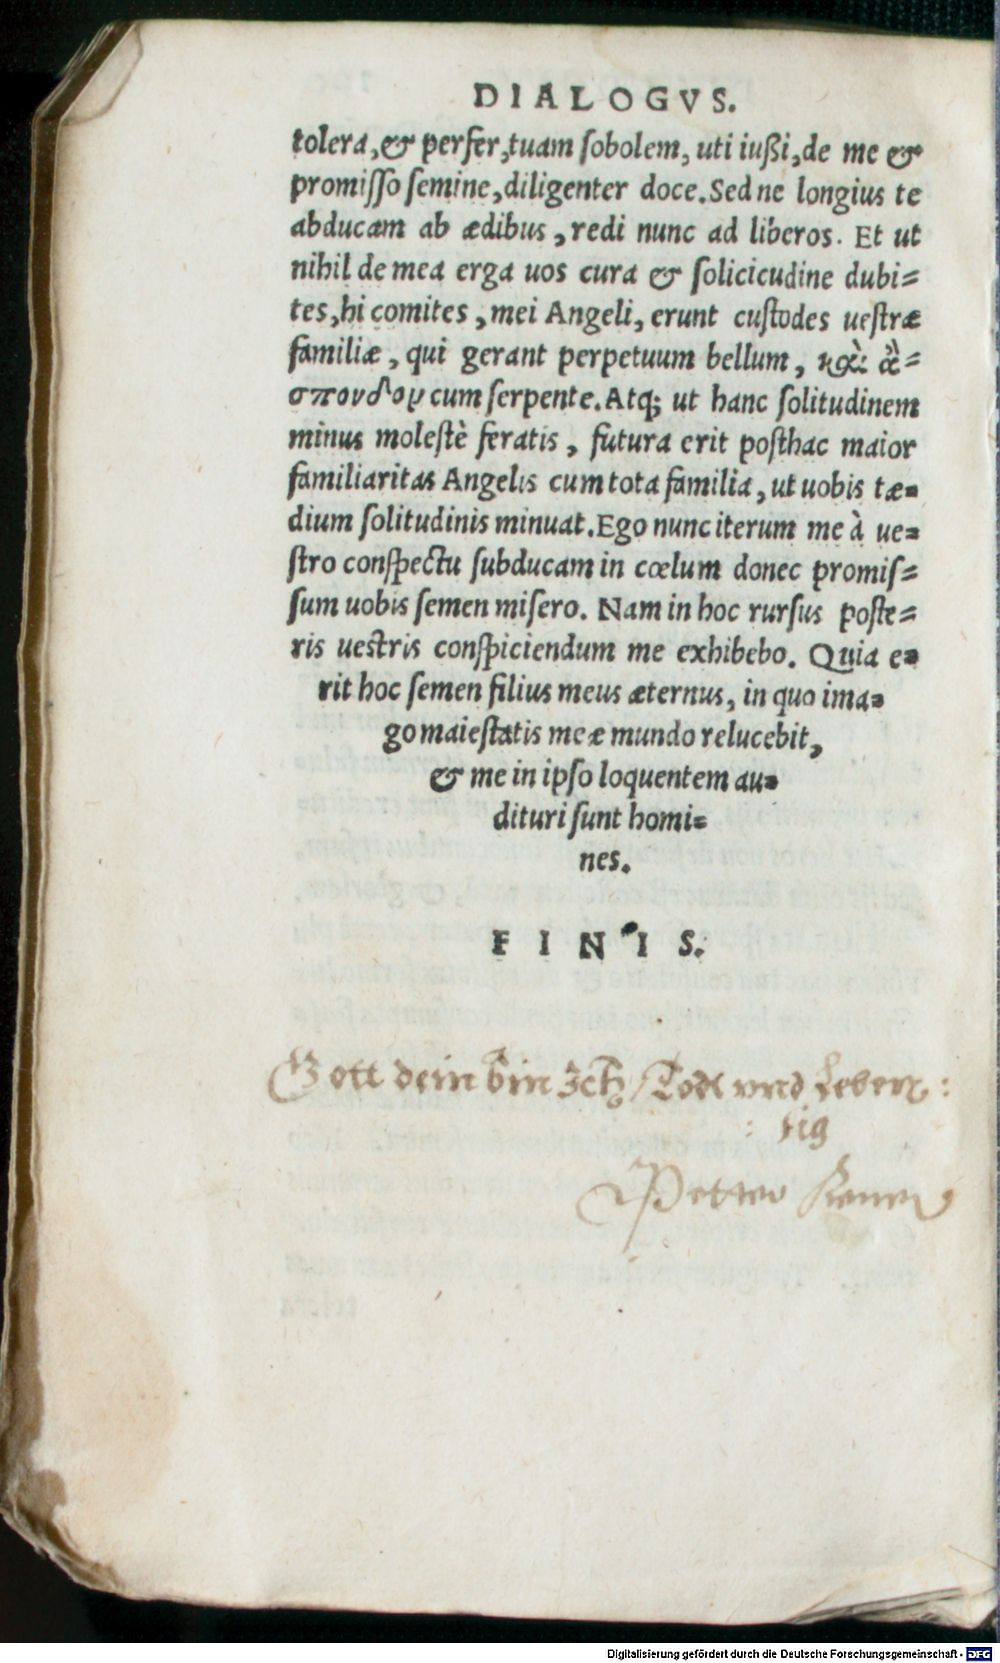 DIALOGVS.
tolera, & perfer, tuam ſobolem, uti iußi, de me &
promiſſo ſemine, diligenter doce. Sed ne longius te
abducam ab ædibus, redi nunc ad liberos. Et ut
nihil de mea erga uos cura & ſolicicudine dubi=
tes, hi comites, mei Angeli, erunt cuſtodes ueſtræ
familiæ, qui gerant perpetuum bellum, καὶ ἄ=
σπονδον cum ſerpente. Atq; ut hanc ſolitudinem
minus moleſtè feratis, futura erit poſthac maior
familiaritas Angelis cum tota familia, ut uobis tæ=
dium ſolitudinis minuat. Ego nunc iterum me à ue=
ſtro conſpectu ſubducam in cœlum donec promiſ=
ſum uobis ſemen miſero. Nam in hoc rurſus poſte=
ris ueſtris conſpiciendum me exhibebo. Quia e=
rit hoc ſemen filius meus æternus, in quo ima=
go maieſtatis meæ mundo relucebit,
& me in ipſo loquentem au=
dituri ſunt homi=
nes.
FINIS.
Gott dein bin Ich / Todt vnd Leben :
: dig
Petter
Digitalisierung gefördert durch die Deutsche Forschungsgemeinschaft - DFG